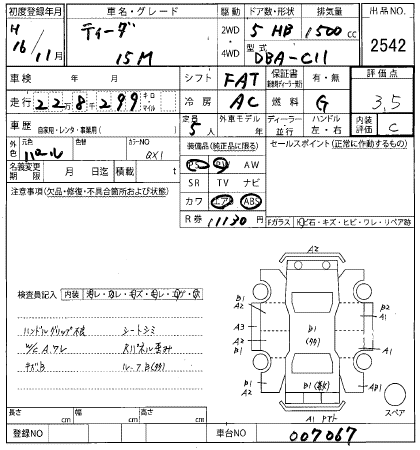 初度登録年月
H
16
年
11月
車名・グレード
ティーダ
15M
駆動
2WD
4WD
ドア数・形状
5 HB
排気量
1500 cc
型式
DBA-C11
出品NO.
2542
車検 年 月
シフト FAT
保証書 有・無
評価点
3.5
走行 22万8千299 キロ・マイル
冷房 AC
燃料 G
車歴 自家用・レンタ・事業用( )
定員 5人
外車モデル 年
ディーラー・並行
ハンドル 左・右
内装評価 C
外色
元色 パール
色替
カラーNO QX1
装備品(純正品に限る)
セールスポイント(正常に作動するもの)
PS PW AW
SR TV ナビ
カワ エアB ABS
名義変更期限 月 日迄
積載 t
注意事項(欠品・修復・不具合箇所および状態)
R券 11130 円
Fガラス
石・キズ・ヒビ・ワレ・リペア跡
検査員記入
内装
ハンドルグリップ
シートシミ
W/C A,ワレ
キズB
A2
B1
A2
B2
A1
A3
A2
B1
A1
B1
A2
B1
AB1
A1
スペア
長さ cm
幅 cm
高さ cm
登録NO
車台NO 007067